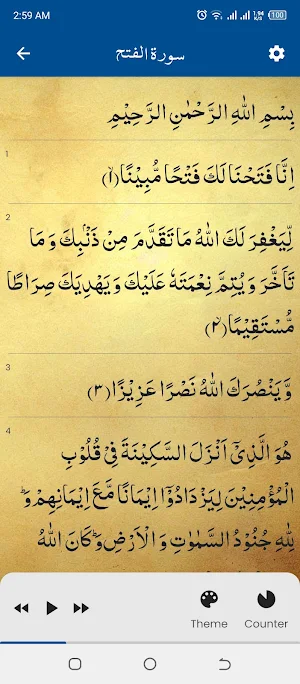 2:59 AM
1.94 K/s
100
سورة الفتح
بِسْمِ اللّٰهِ الرَّحْمٰنِ الرَّحِيْمِ
1
اِنَّا فَتَحْنَا لَكَ فَتْحًا مُّبِيْنًا ﴿۱﴾
2
لِّيَغْفِرَ لَكَ اللّٰهُ مَا تَقَدَّمَ مِنْ ذَنْۢبِكَ وَ مَا
تَاَخَّرَ وَ يُتِمَّ نِعْمَتَهٗ عَلَيْكَ وَ يَهْدِيَكَ صِرَاطًا
مُّسْتَقِيْمًا ﴿۲﴾
3
وَّ يَنْصُرَكَ اللّٰهُ نَصْرًا عَزِيْزًا ﴿۳﴾
4
هُوَ الَّذِيْۤ اَنْزَلَ السَّكِيْنَةَ فِيْ قُلُوْبِ
الْمُؤْمِنِيْنَ لِيَزْدَادُوْۤا اِيْمَانًا مَّعَ اِيْمَانِهِمْ ؕ وَ
لِلّٰهِ جُنُوْدُ السَّمٰوٰتِ وَ الْاَرْضِ ؕ وَ كَانَ اللّٰهُ
Theme
Counter